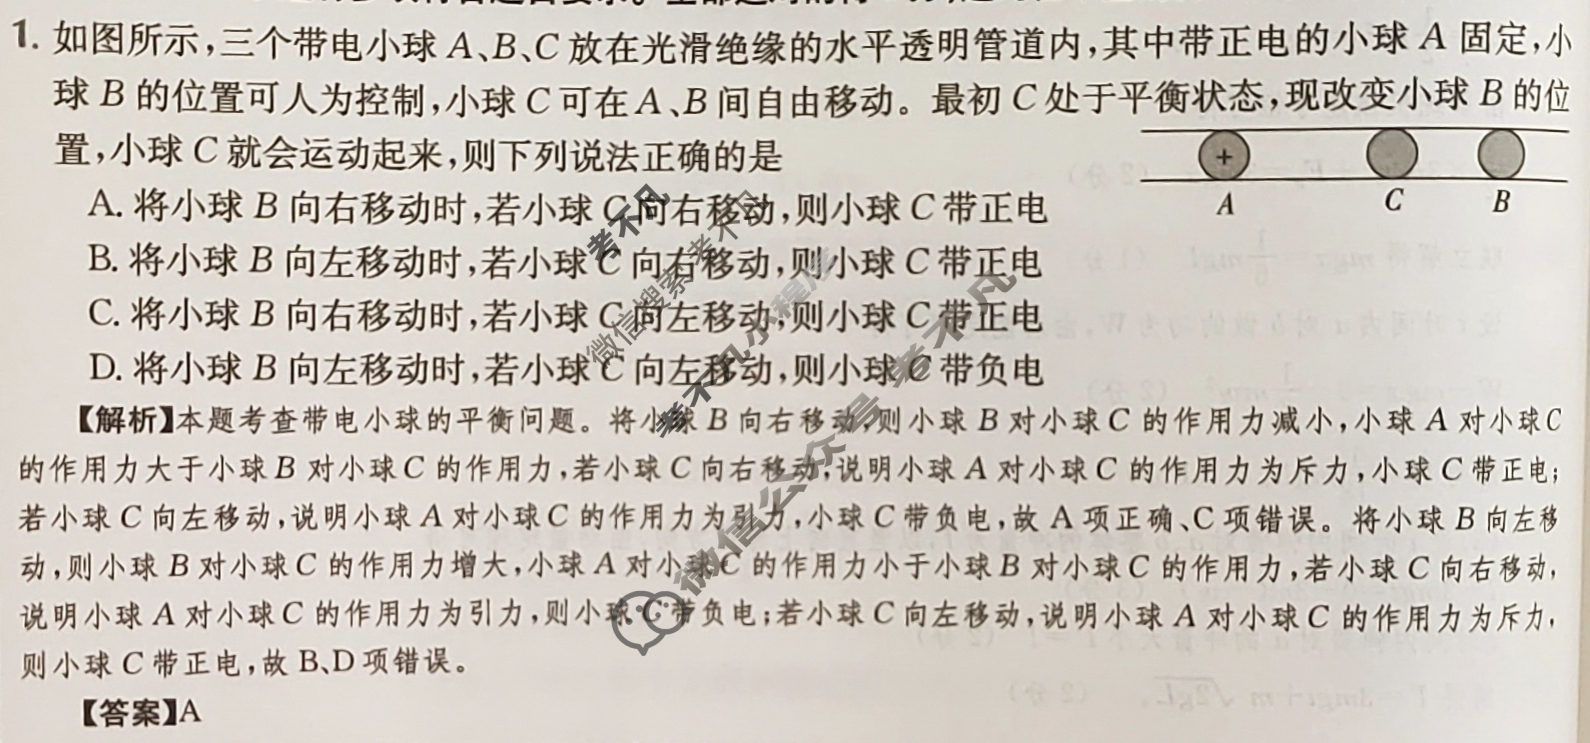 1. 如图所示,三个带电小球 A、B、C 放在光滑绝缘的水平透明管道内,其中带正电的小球 A 固定,小
球 B 的位置可人为控制,小球 C 可在 A、B 间自由移动。最初 C 处于平衡状态,现改变小球 B 的位
置,小球 C 就会运动起来,则下列说法正确的是
+
A C B
A. 将小球 B 向右移动时,若小球 C 向右移动,则小球 C 带正电
B. 将小球 B 向左移动时,若小球 C 向右移动,则小球 C 带正电
C. 将小球 B 向右移动时,若小球 C 向左移动,则小球 C 带正电
D. 将小球 B 向左移动时,若小球 C 向左移动,则小球 C 带负电
【解析】本题考查带电小球的平衡问题。将小球 B 向右移动,则小球 B 对小球 C 的作用力减小,小球 A 对小球 C
的作用力大于小球 B 对小球 C 的作用力,若小球 C 向右移动,说明小球 A 对小球 C 的作用力为斥力,小球 C 带正电;
若小球 C 向左移动,说明小球 A 对小球 C 的作用力为引力,小球 C 带负电,故 A 项正确、C 项错误。将小球 B 向左移
动,则小球 B 对小球 C 的作用力增大,小球 A 对小球 C 的作用力小于小球 B 对小球 C 的作用力,若小球 C 向右移动,
说明小球 A 对小球 C 的作用力为引力,则小球 C 带负电;若小球 C 向左移动,说明小球 A 对小球 C 的作用力为斥力,
则小球 C 带正电,故 B、D 项错误。
【答案】A
考不凡
微信搜索:考不凡
考不凡小程序
微信公众号 考不凡